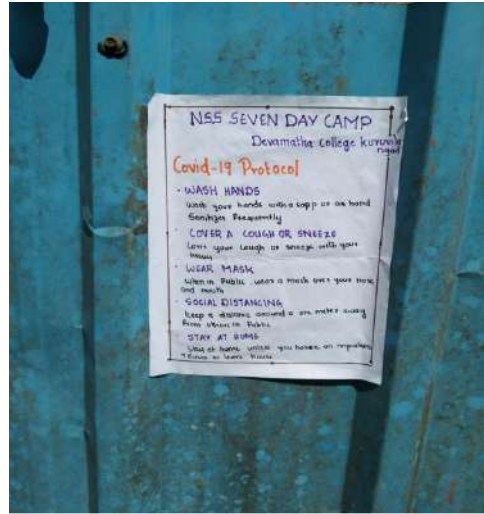 NSS SEVEN DAY CAMP
Devamatha College kuruvila
Covid-19 Protocol
• WASH HANDS
wash your hands with a sopp or an hand
Sanitizer Frequently
COVER A COUGH OR SNEEZE
Cover your cough or sneeze with your
• WEAR MASK
when in Public wear a mask over your nose
and mouth
• SOCIAL DISTANCING
keep a distance around a one meter away
From others in Public
• STAY AT HOME
stay at home unless you have an important
to leave house